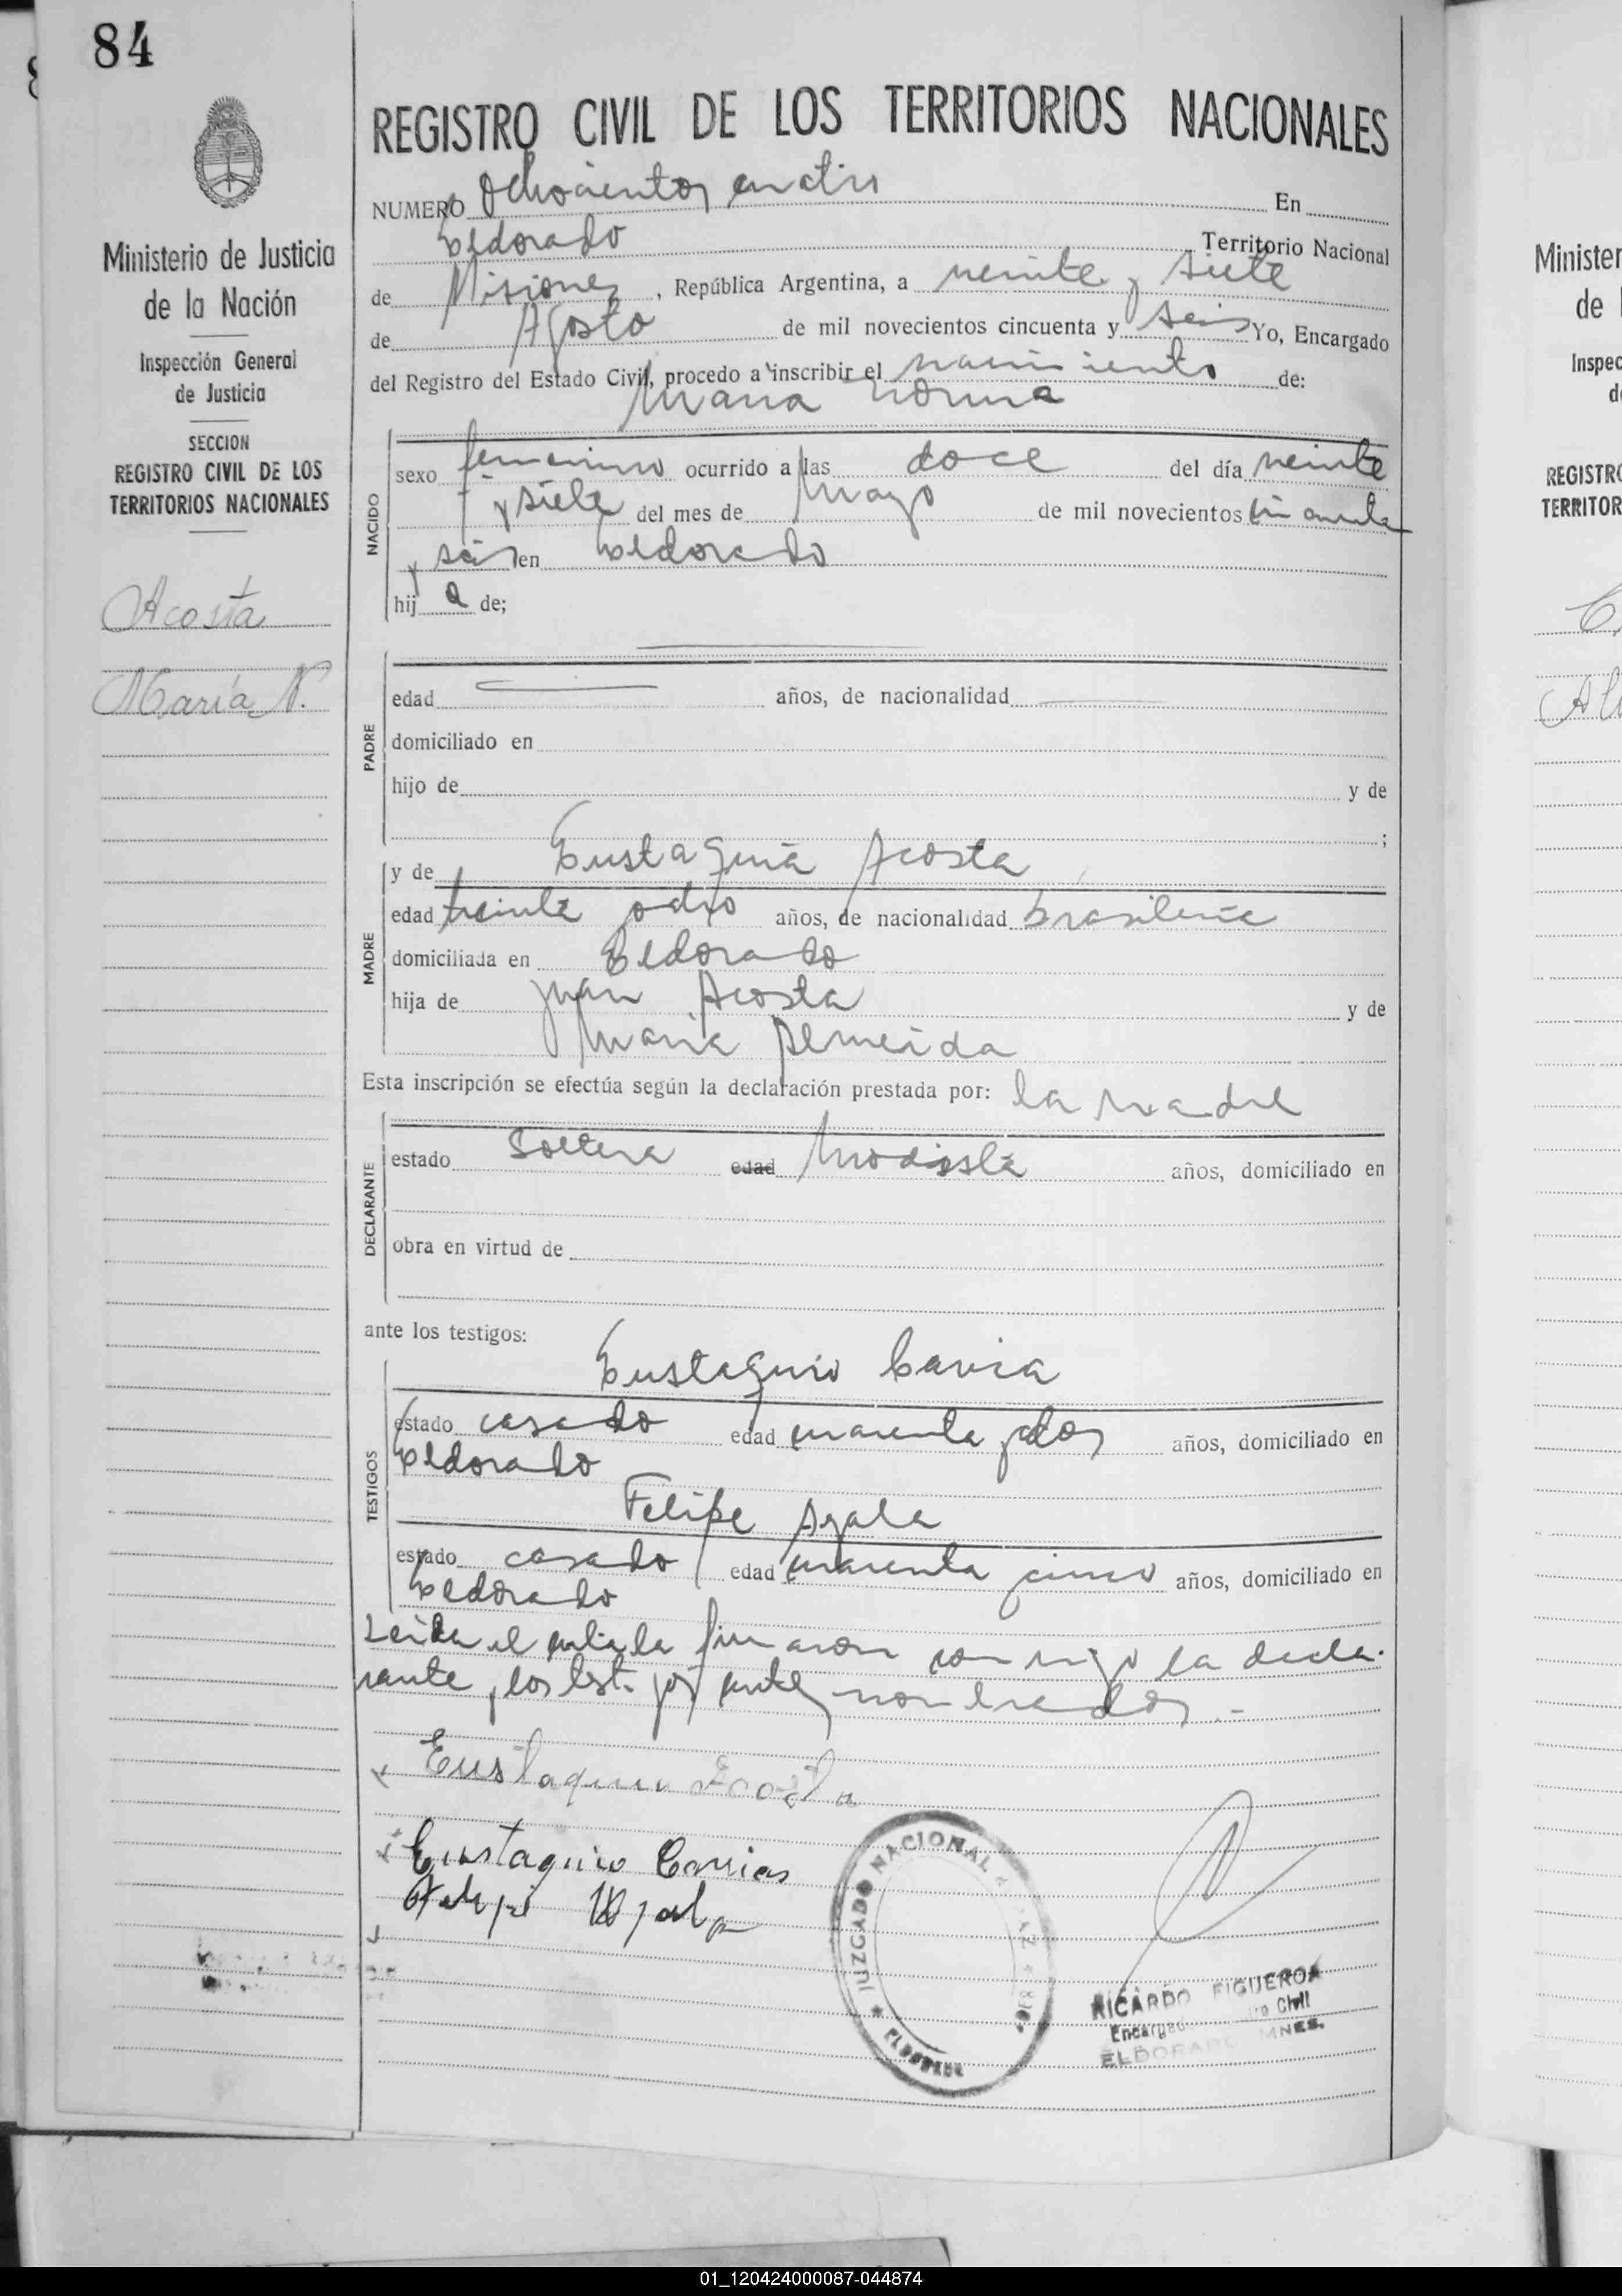 84
REGISTRO CIVIL DE LOS TERRITORIOS NACIONALES
Ministerio de Justicia
de la Nación
Inspección General
de Justicia
SECCION
REGISTRO CIVIL DE LOS
TERRITORIOS NACIONALES
Acosta
María N.
NUMERO Ochocientos cuatro En
Eldorado Territorio Nacional
de Misiones, República Argentina, a veinte y siete
de Agosto de mil novecientos cincuenta y seis Yo, Encargado
del Registro del Estado Civil, procedo a inscribir el nacimiento de:
Maria Norma
NACIDO
sexo femenino ocurrido a las doce del día veinte
y siete del mes de Mayo de mil novecientos cincuenta
y seis en Eldorado
hij a de;
PADRE
edad años, de nacionalidad
domiciliado en
hijo de y de
;
MADRE
y de Eustaquia Acosta
edad treinta ocho años, de nacionalidad brasileña
domiciliada en Eldorado
hija de Juan Acosta y de
Maria Almeida
Esta inscripción se efectúa según la declaración prestada por: la madre
DECLARANTE
estado Soltera edad Modista años, domiciliado en
obra en virtud de
ante los testigos:
TESTIGOS
Eustaquio
estado casado edad cuarenta y dos años, domiciliado en
Eldorado
Felipe Ayala
estado casado edad cuarenta y cinco años, domiciliado en
Eldorado
Leida el acta la firmaron conmigo la decla-
rante, los testigos antes nombrados.-
Eustaquia Acosta
Eustaquio
JUZGADO NACIONAL
ELDORADO
RICARDO FIGUEROA
Civil
ELDORADO MNES.
Minister
de
Inspec
REGISTRO
TERRITOR
01_120424000087-044874